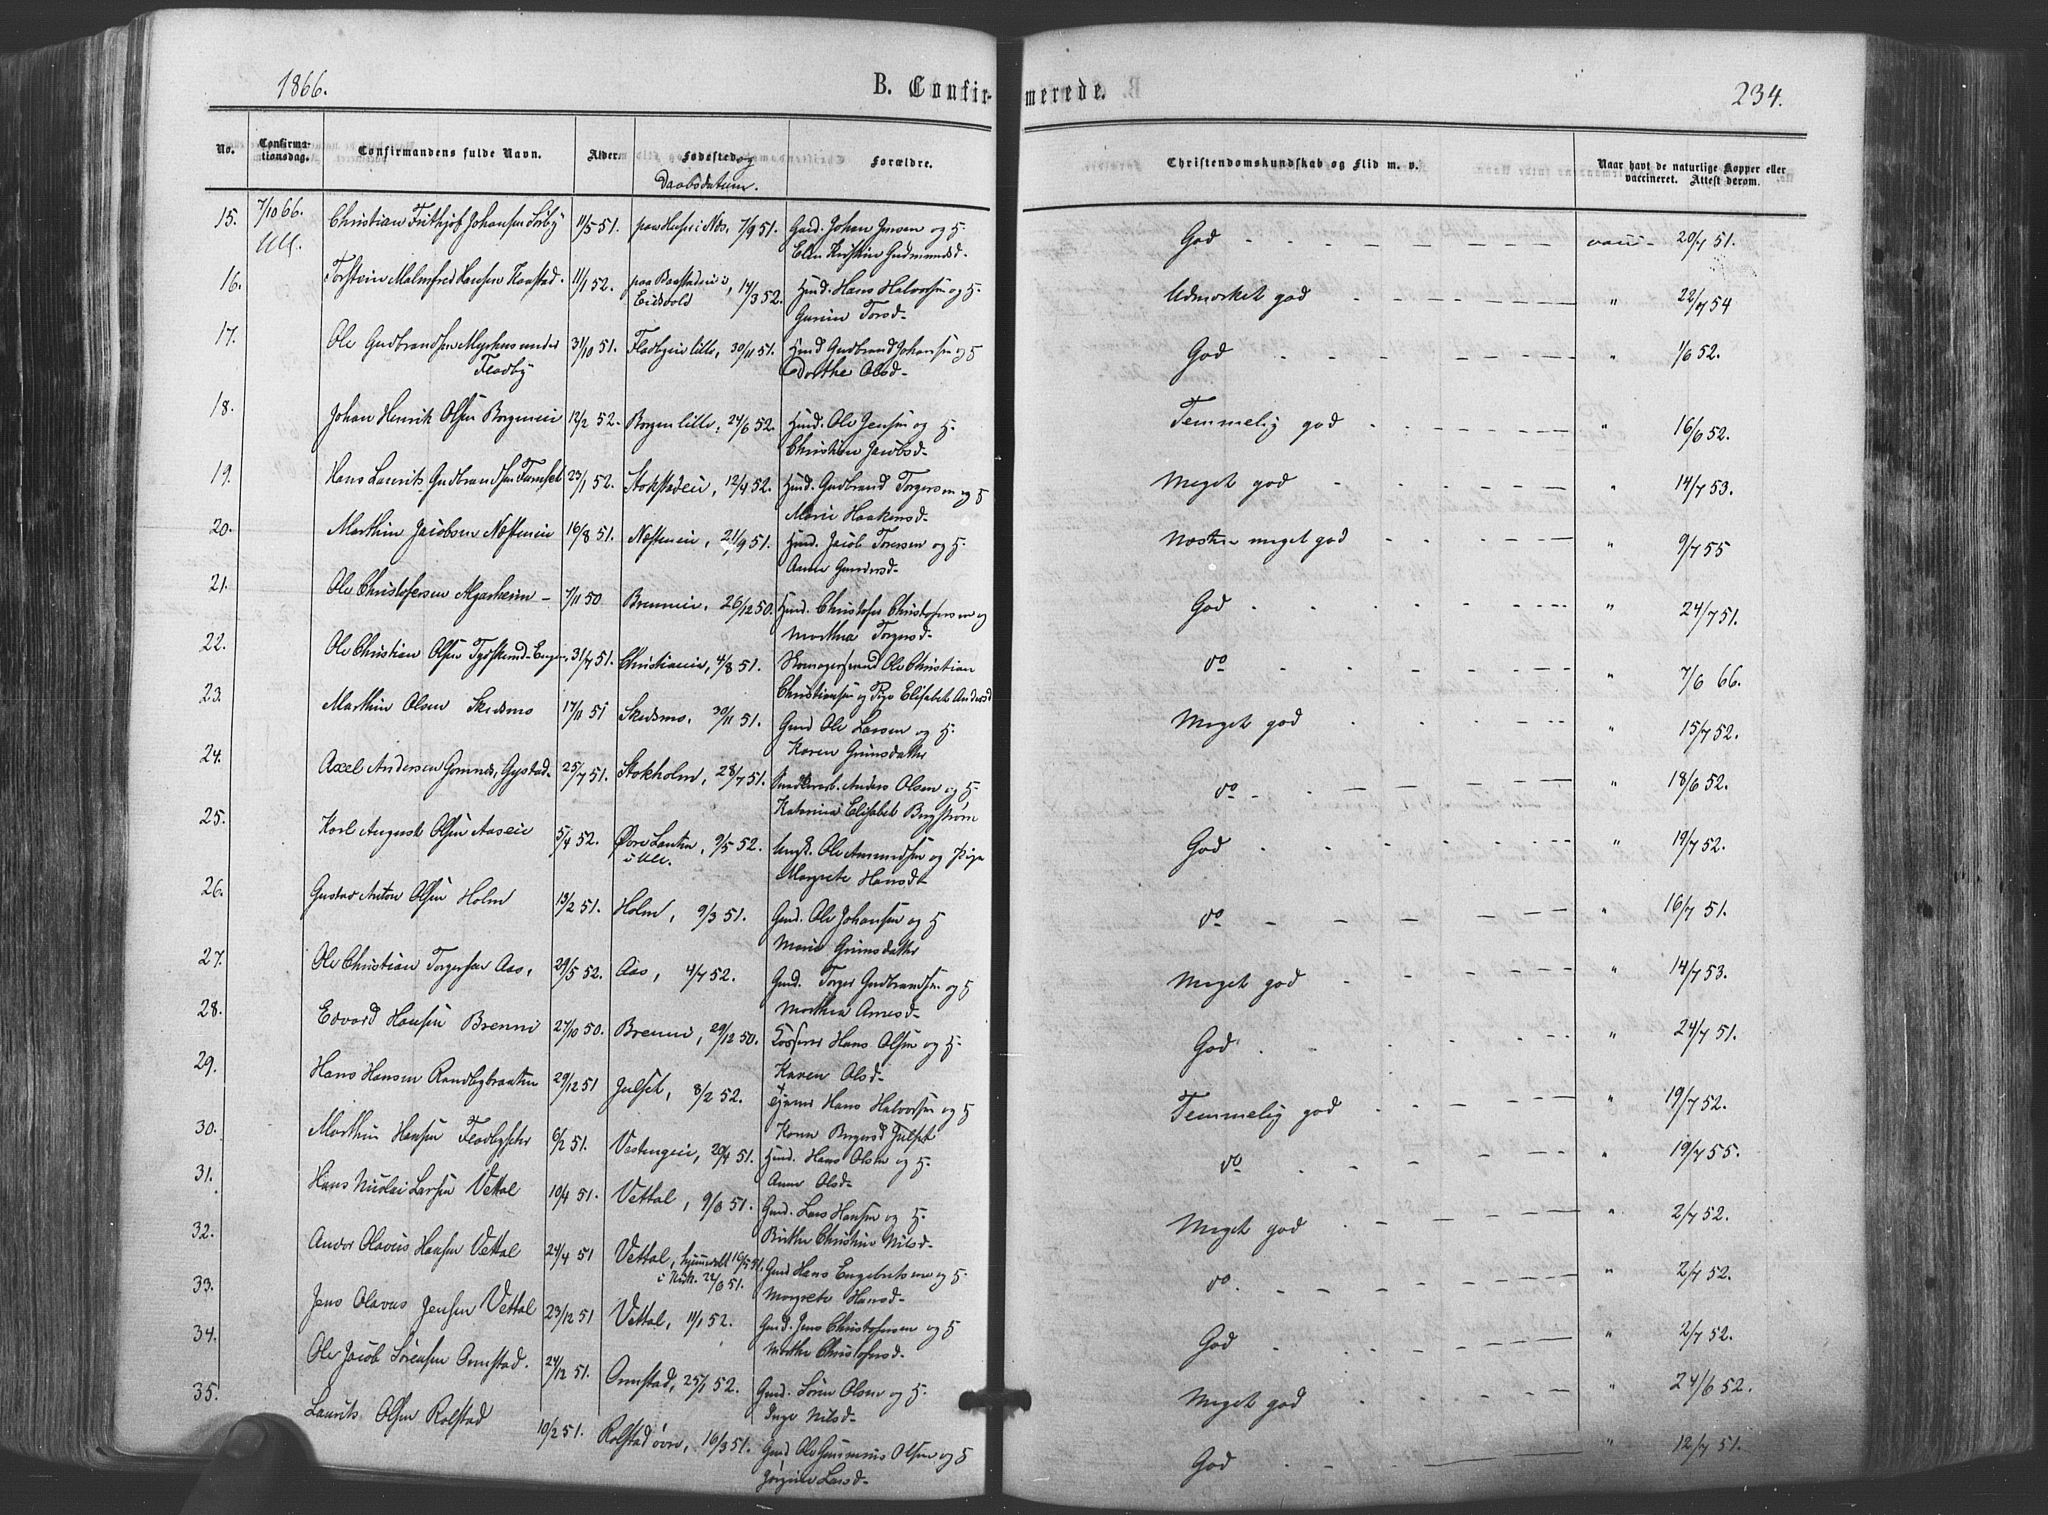 1866.
B. Confir-merede.
234.
No. Confirma-tionsdag. Confirmandens fulde Navn. Alder. Fødested og Daabsdatum. Forældre. Christendomskundskab og Flid m. v. Naar havt de naturlige Kopper eller vaccineret. Attest derom.
15. 7/10 66. Christian Frithjof Johansen Sørby 11/5 51. paa i Næs, 7/9 51. Gaard. Johan Jensen og H. God vacc. 20/7 51.
Ull. Ellen Kirstine Gudmundsd.
16. Torstein Malmfred Hansen Kaastad. 11/1 52. paa i Eidsvold, 14/3 52. Husd. Hans Halvorsen og H. Udmærket god " 22/7 54
Torsd-
17. Ole Gudbrandsen Myrhus under Fladby 31/10 51. Fladbyeie lille, 30/11 51. Husd. Gudbrand Johansen og H Dorthe Olsd- God " 1/6 52.
18. Johan Henrik Olsen Borgeneie 12/2 52. Borgen lille, 24/6 52. Husd. Ole Jensen og H. Temmelig god " 16/6 52.
Christine Jacobsd-
19. Hans Laurits Gudbrandsen 23/1 52. Stokstadeie, 12/4 52. Husd. Gudbrand Torgersen og H Meget god " 14/7 53.
Marie Haakensd-
20. Marthin Jacobsen Næsteneie 16/8 51. Næsteneie, 21/9 51. Husd. Jacob Toresen og H. Næsten meget god " 9/7 55
Anne Gundersd-
21. Ole Christofersen Algarheim- 7/11 50 Brenneie, 26/12 50. Husd. Christofer Christofersen og God " 24/7 51.
Marthea Torgersd-
22. Ole Christian Olsen 31/7 51. Christianeie, 4/8 51. Skomagersvend Ole Christian do " 7/6 66.
Christiansen og Pige Elisabet Andersd
23. Marthin Olsen Skedsmo 17/11 51 Skedsmo, 30/11 51. Gaard Ole Larsen og H. Meget god " 15/7 52.
Karen Grimsdatter
24. Axel Andersen Gomnæs, Gystad- 25/7 51. Stokholm, 28/7 51. Anders Olsen og H- do " 18/6 52.
Katarina Elisabet Bergstrøm
25. Karl August Olsen Aaseie 5/4 52. Øvre i Ull., 9/5 52. Ungk. Ole Amundsen og Pige God " 19/7 52.
Margrete Hansdt
26. Gustav Anton Olsen Holm 13/2 51. Holm, 9/3 51. Gaard. Ole Johansen og H do " 16/7 51.
Marie Grimsdatter
27. Ole Christian Torgersen Aas, 29/5 52. Aas, 4/7 52. Gaard. Torger Gudbrandsen og H Meget god " 14/7 53.
Marthea Arnesd-
28. Edvard Hansen Brenni 27/10 50. Brenni, 29/12 50. Hans Olsen og H- God " 24/7 51.
Karen Olsd-
29. Hans Hansen Randbybraaten 29/12 51 Julset, 8/2 52. Hans Halvorsen og H Temmelig god " 19/7 52.
Karen Julset
30. Marthin Hansen Fladbysæter 6/2 51. Vestengeie, 20/4 51. Husd. Hans Olsen og H. do " 19/7 55.
Anne Olsd-
31. Hans Nicolai Larsen Vettal 10/4 51. Vettal, 9/6 51. Gaard. Lars Hansen og H. Meget god " 2/7 52.
Birthe Christine Nilsd-
32. Andor Olavus Hansen Vettal 24/4 51 Vettal, hjemmedøbt 16/5 51, Gaard Hans Engebretsen og H- do " 2/7 52.
i Kirk. 22/6 51. Margrete Hansd-
33. Jens Olavus Jensen Vettal 23/12 51 Vettal, 11/1 52. Gaard. Jens Christofersen og H God " 2/7 52.
Marthe Christofersd-
34. Ole Jacob Sørensen Onnstad. 24/12 51. Onnstad, 25/1 52. Gaard. Sören Olsen og H- Meget god " 24/6 52.
Inge Nilsd-
35. Laurits Olsen Rolstad 10/2 51. Rolstad övre, 16/3 51. Gaard Ole Olsen og H God " 12/7 51.
Jørgine Larsd-